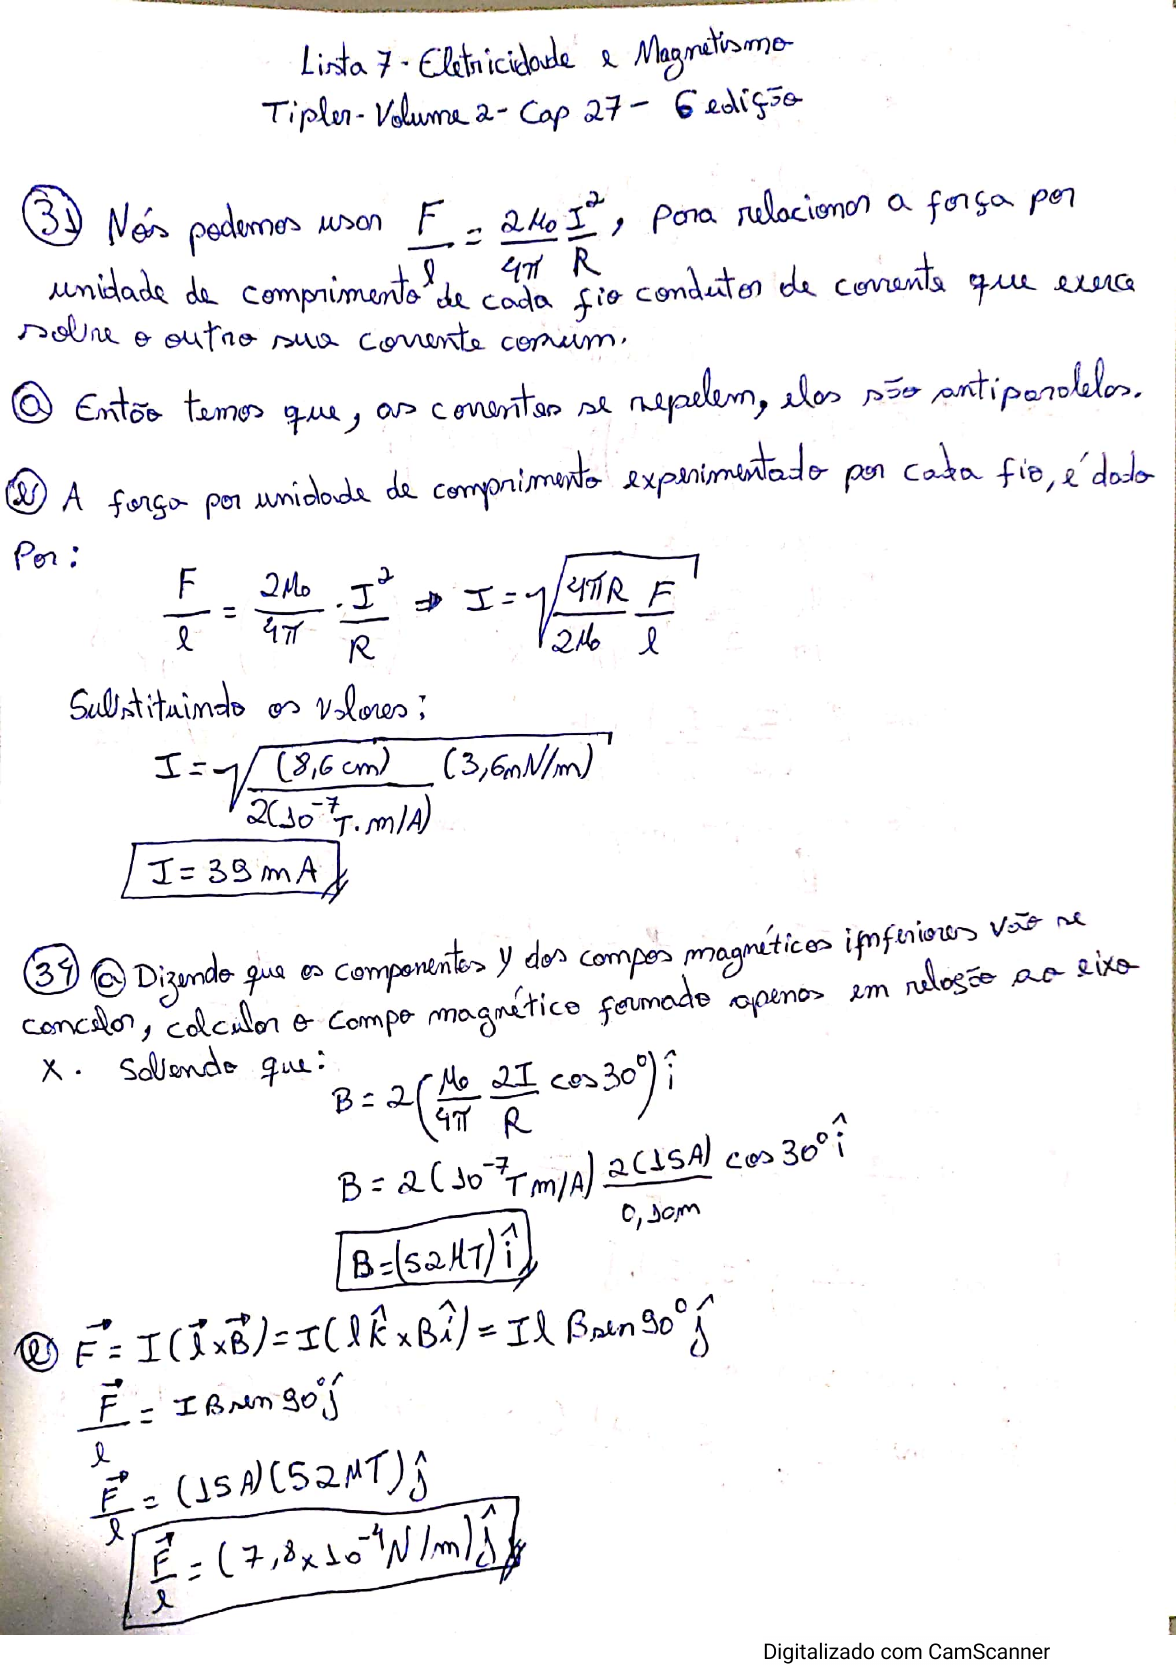 Lista 7 - Eletricidade e Magnetismo
Tipler - Volume 2 - Cap 27 - 6 edição
31 Nós podemos usar F/l = 2μ₀/4π I²/R, para relacionar a força por
unidade de comprimento de cada fio condutor de corrente que exerce
sobre o outro sua corrente comum.
a Então temos que, as correntes se repelem, elas são antiparalelas.
b A força por unidade de comprimento experimentado por cada fio, é dada
Por:
F/l = 2μ₀/4π · I²/R ⇒ I = √(4πR/2μ₀ F/l)
Substituindo os valores:
I = √((8,6 cm)/2(10⁻⁷ T·m/A) (3,6nN/m))
I = 39 mA
34 a Dizendo que os componentes y dos campos magnéticos inferiores vão se
cancelar, calcular o campo magnético formado apenas em relação ao eixo
x. Sabendo que:
B = 2(μ₀/4π 2I/R cos 30°) î
B = 2(10⁻⁷ T m/A) 2(15A)/0,10m cos 30° î
B = (52μT) î
b F⃗ = I(l⃗ x B⃗) = I(l k̂ x B î) = Il B sen 90° ĵ
F⃗/l = I B sen 90° ĵ
F⃗/l = (15A)(52μT) ĵ
F⃗/l = (7,8 x 10⁻⁴ N/m) ĵ
Digitalizado com CamScanner